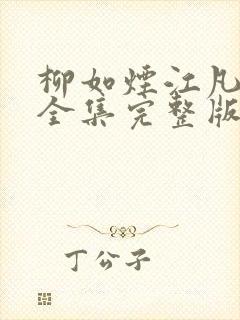 柳如煙江凡
全集完整版
丁公子